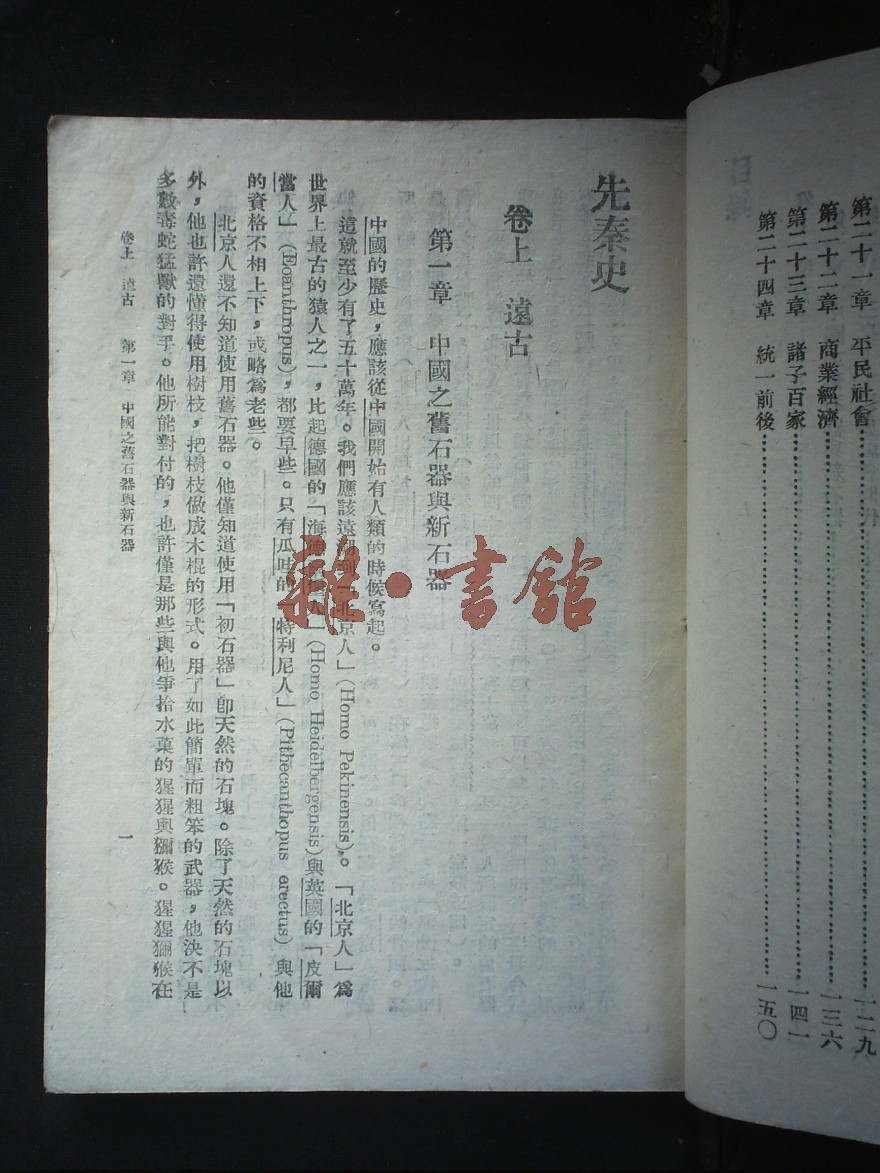 第二十一章 平民社會……一二九
第二十二章 商業經濟……一三六
第二十三章 諸子百家……一四一
第二十四章 統一前後……一五〇
先秦史
卷上 遠古
第一章 中國之舊石器與新石器
中國的歷史，應該從中國開始有人類的時候寫起。
這就至少有了五十萬年。我們應該遠溯到「北京人」(Homo Pekinensis)。「北京人」爲
世界上最古的猿人之一，比起德國的「海德堡人」(Homo Heidelbergensis)與英國的「皮爾
當人」(Eoanthropus)，都要早些。只有瓜哇的「特利尼人」(Pithecanthopus erectus)與他
的資格不相上下，或略爲老些。
北京人還不知道使用舊石器。他僅知道使用「初石器」卽天然的石塊。除了天然的石塊以
外，他也許還懂得使用樹枝，把樹枝做成木棍的形式。用了如此簡單而粗笨的武器，他決不是
多數毒蛇猛獸的對手。他所能對付的，也許僅是那些與他爭拾水菓的猩猩與獼猴。猩猩獼猴在
卷上 遠古 第一章 中國之舊石器與新石器
一
雜·書館